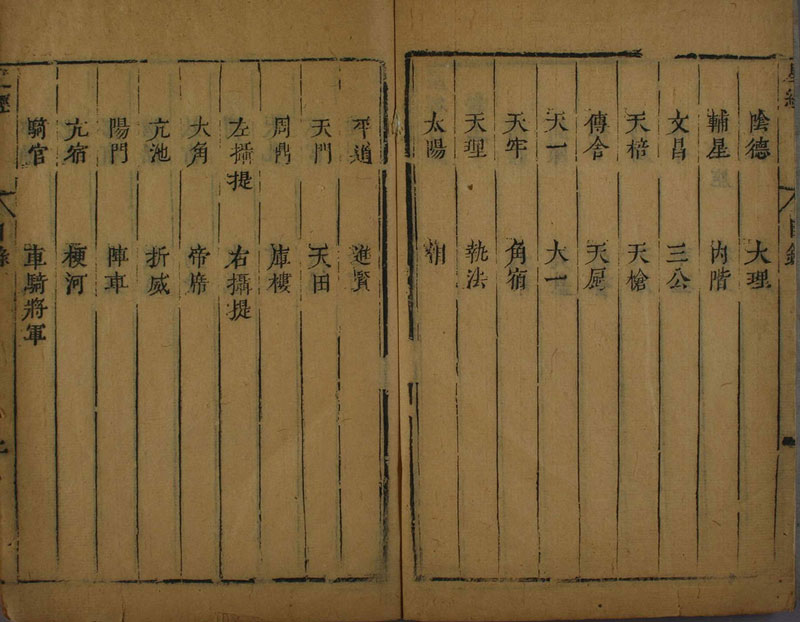 陰德 大理
輔星 內階
文昌 三公
天棓 天槍
傳舍 天厨
天一 大一
天牢 角宿
天理 執法
太陽 相
平道 進賢
天門 天田
周鼎 庫樓
左攝提 右攝提
大角 帝席
亢池 折威
陽門 陣車
亢宿 梗河
騎官 車騎將軍
星經
目錄